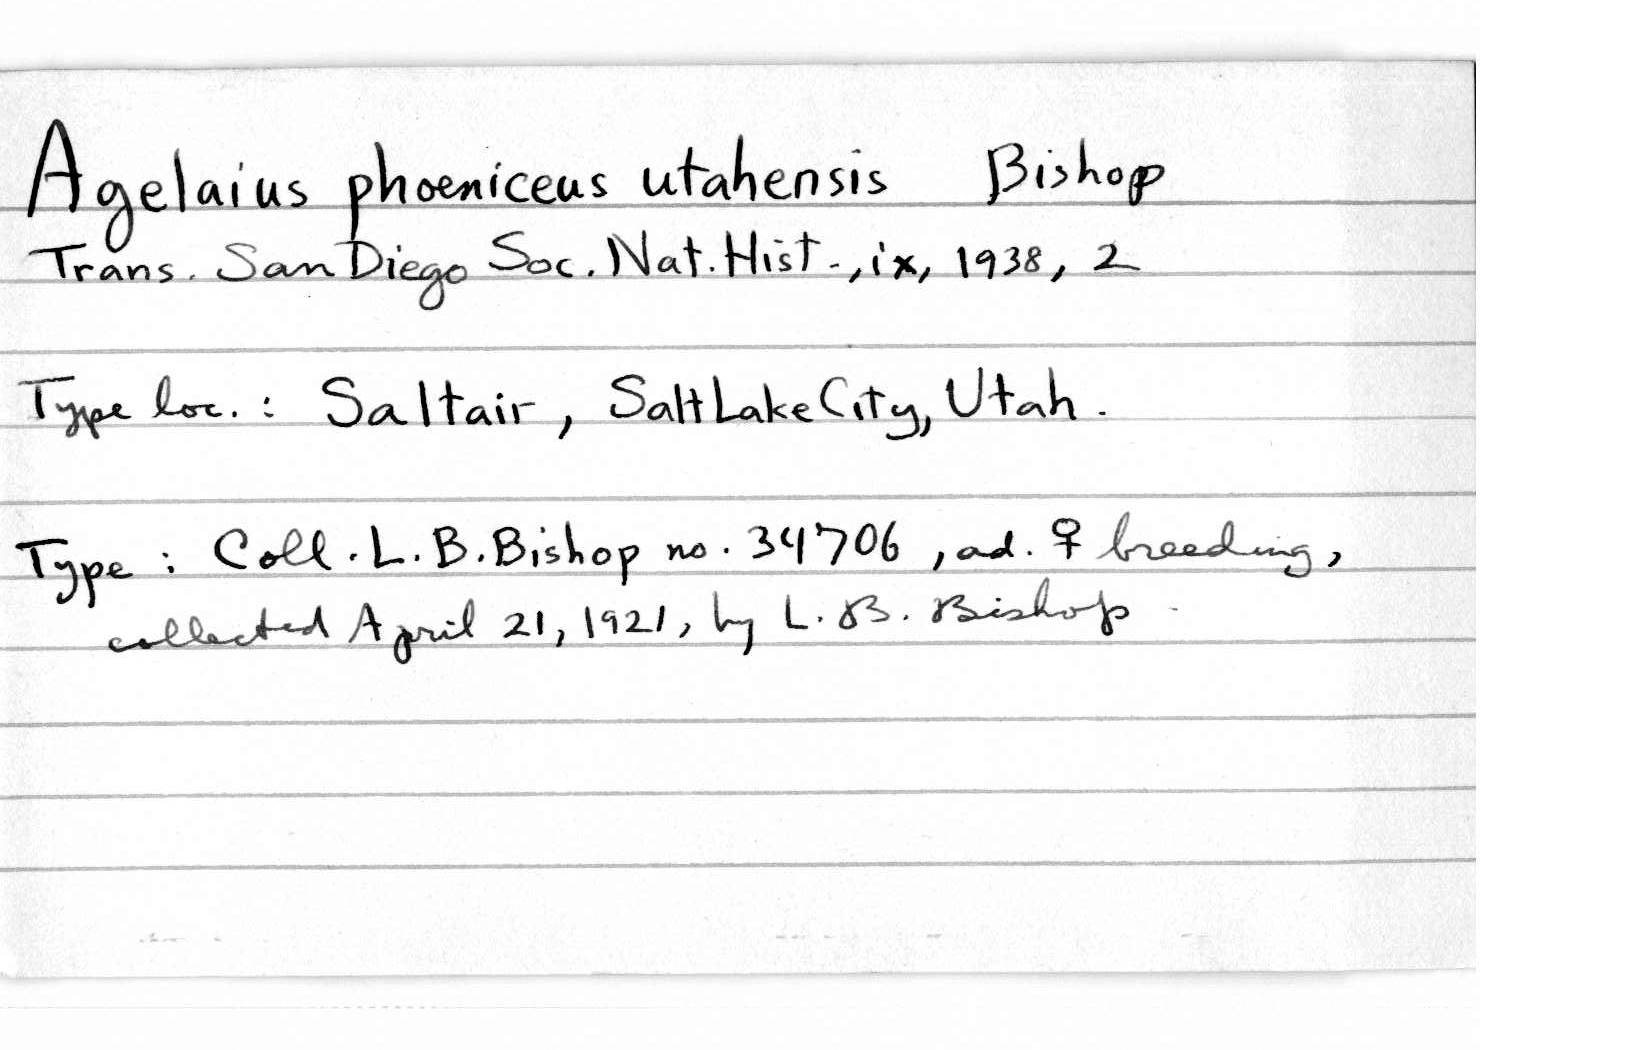 Agelaius phoeniceus utahensis Bishop
Trans. San Diego Soc. Nat. Hist., ix, 1938, 2
Type loc.: Saltair, Salt Lake City, Utah.
Type: Coll. L. B. Bishop no. 34706, ad. ♀ breeding,
collected April 21, 1921, by L. B. Bishop.